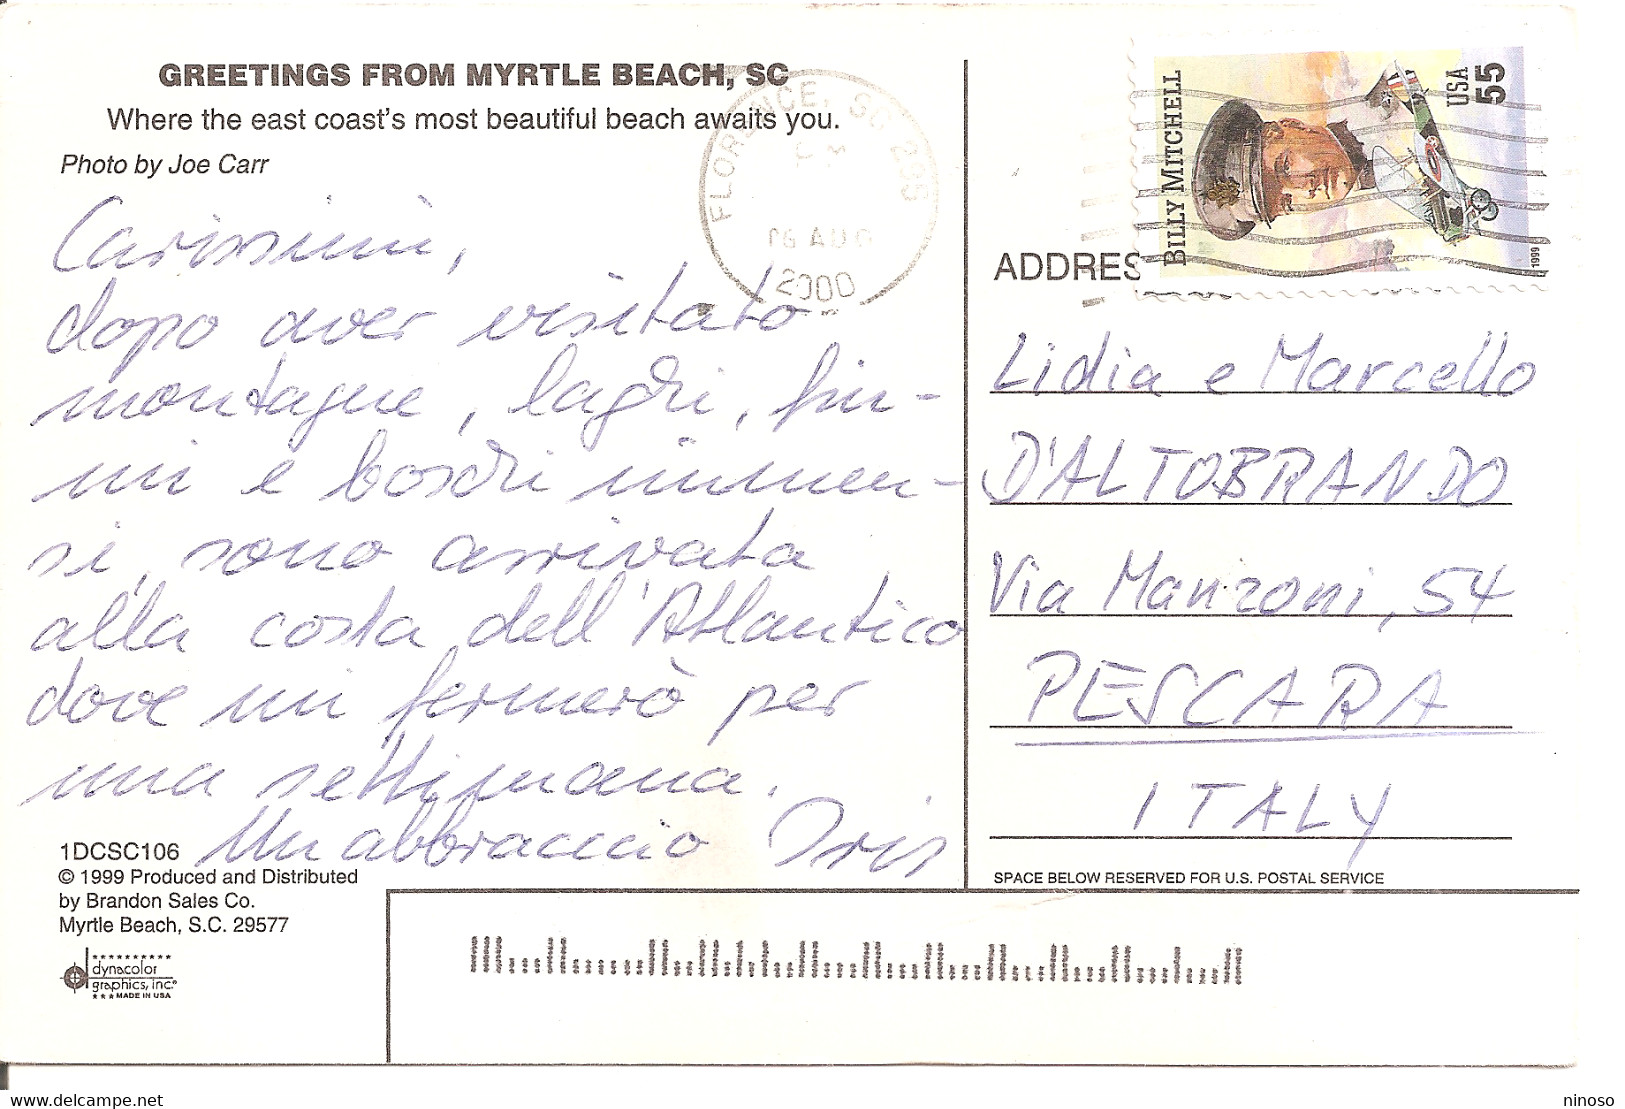 GREETINGS FROM MYRTLE BEACH, SC
Where the east coast's most beautiful beach awaits you.
Photo by Joe Carr
Carissimi,
dopo aver visitato
montagne, laghi, fiu-
mi e boschi immen-
si, sono arrivata
alla costa dell'Atlantico
dove mi fermerò per
una settimana.
Un abbraccio Iris
1DCSC106
© 1999 Produced and Distributed
by Brandon Sales Co.
Myrtle Beach, S.C. 29577
dynacolor
graphics, inc.
MADE IN USA
FLORENCE, SC 295
16 AUG
2000
BILLY MITCHELL
USA
55
1999
ADDRES
Lidia e Marcello
D'ALTOBRANDO
Via Manzoni, 54
PESCARA
ITALY
SPACE BELOW RESERVED FOR U.S. POSTAL SERVICE
delcampe.net
ninoso